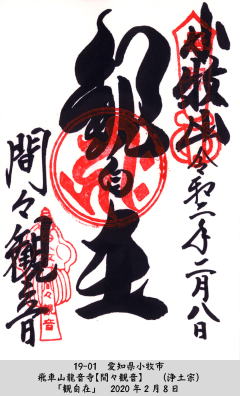 小牧山
令和二年二月八日
観自在
間々観音
19-01 愛知県小牧市
飛車山龍音寺【間々観音】 (浄土宗)
「観自在」 2020年2月8日